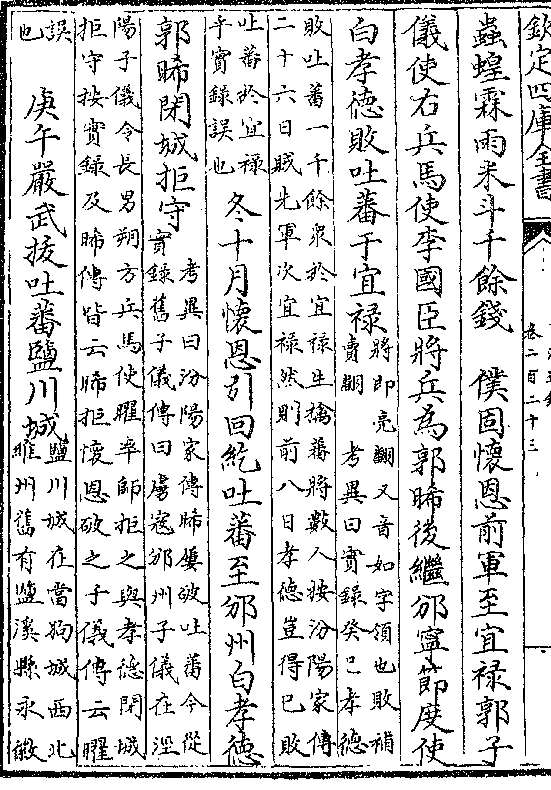 欽定四庫全書
卷二百二十三
蟲蝗霖雨米斗千餘錢　僕固懷恩前軍至宜禄郭子
儀使右兵馬使李國臣將兵為郭晞後繼邠寧節度使
白孝德敗吐蕃于宜禄將即亮翻又音如字領也敗補
賣翻　考異曰實録癸巳孝德
敗吐蕃一千餘衆於宜禄生擒蕃將數人按汾陽家傳
二十六日賊先軍次宜禄然則前八日孝德豈得已敗
吐蕃於宜禄
乎實録誤也　冬十月懷恩引回紇吐蕃至邠州白孝德
郭晞閉城拒守　考異曰汾陽家傳晞屢破吐蕃今從
實録舊子儀傳曰虜寇邠州子儀在涇
陽子儀令長男朔方兵馬使曜率師拒之與孝德閉城
拒守按實録及晞傳皆云晞拒懷恩破之子儀傳云曜
誤
也　庚午嚴武拔吐蕃鹽川城鹽川城在當狗城西北
維州舊有鹽溪縣永徽